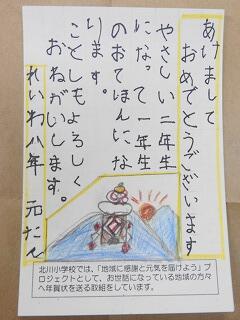 あけまして
おめでとうございます
やさしい二年生
になって一年生
のおてほんにな
ります。
ことしもよろしく
おねがいします。
れいわ八年 元たん
北川小学校では、「地域に感謝と元気を届けよう」プ
ロジェクトとして、お世話になっている地域の方々
へ年賀状を送る取組をしています。